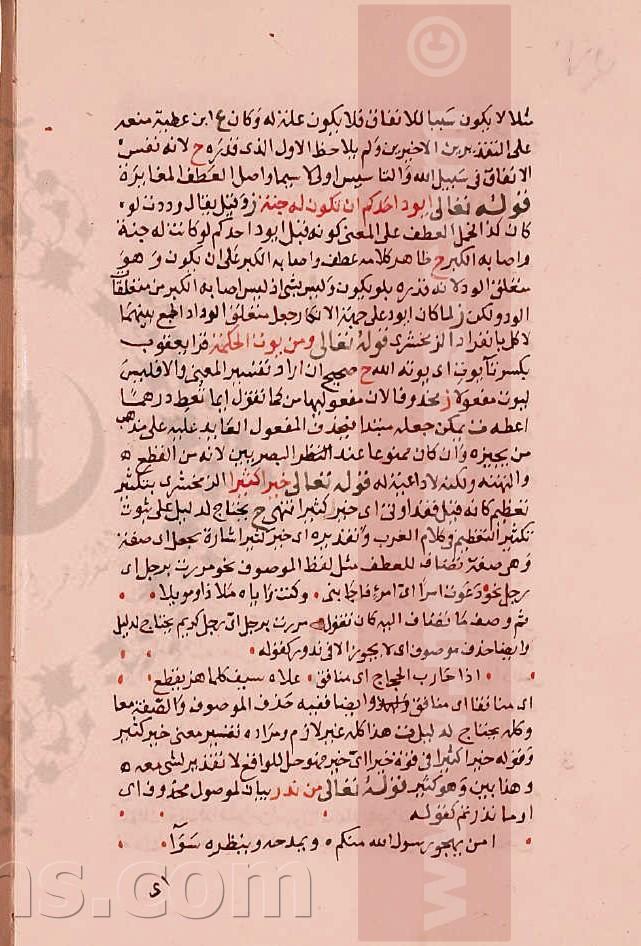 مثلا لا يكون سببا للانفاق فلا يكون علة له وكان ابن عطية منعه
على التقديرين الاخيرين ولم يلاحظ الاول الذى قدره ح لانه نفس
الانفاق فى سبيل الله والتاسيس اولى لا سيما واصل العطف المغايرة
قوله تعالى ايود احدكم ان تكون له جنة ز وقيل يقال وددت لو
كان كذا فحمل العطف على المعنى كونه قيل ايود احدكم لو كانت له جنة
واصابه الكبر ح ظاهر كلامه عطف واصابه الكبر على ان يكون وهو
متعلق الود لانه قدره بلو يكون وليس بشى اذ ليس اصابه الكبر من متعلقات
الود ولكن لما كان ايود على جهة الانكار جعل متعلق الوداد الجمع بينهما
لا كل بانفراد الزمخشرى قوله تعالى ومن يوت الحكمة قرا يعقوب
بكسر تا يوت اى يوته الله ح صحيح ان اراد تفسير المعنى والا فليس
ليوت مفعولا ز محذوفا لان مفعولها من كما تقول ايما تعط درهما
اعطه ف يمكن جعله مبتدا فيحذف المفعول العايد عليه على مذهب
من يجيزه وان كان ممنوعا عند النظر البصريين لانه من القطع
والتهيئة ولكنه لا داعية له قوله تعالى خيرا كثيرا الزمخشرى تنكير
تعظيم كانه قيل فقد اوتى اى خير كثير انتهى ح يحتاج لدليل على ثبوت
تنكير التعظيم وكلام العرب وتقديره اى خير كثير اشارة بجعل اى صفة
وهى صفة تضاف للعطف مثل لفظ الموصوف نحو مررت برجل اى
رجل نحو دعوت امرا اى امرء فاجابنى وكنت واياه ملاذا وموئلا
ثم وصف ما تضاف اليه كان تقول مررت برجل اى رجل كريم يحتاج لدليل
وايضا حذف موصوف اى لا يجوز الا فى ندور كقوله
اذا حارب الحجاج اى منافق علاه بسيف كلما هز يقطع
اى منافقا اى منافق وايضا ففيه حذف الموصوف والصفة معا
وكله يحتاج لدليل ف هذا كله غير لازم ومراده تفسير معنى خير كثير
وقوله خيرا كثيرا فى قوة خيرا اى خير فهو حل للواقع لا تقدير لشى معه
وهذا بين وهو كثير قوله تعالى من نذر بيان لموصول محذوف اى
او ما نذرتم كقوله
امن يهجو رسول الله منكم ويمدحه وينظره سوآ